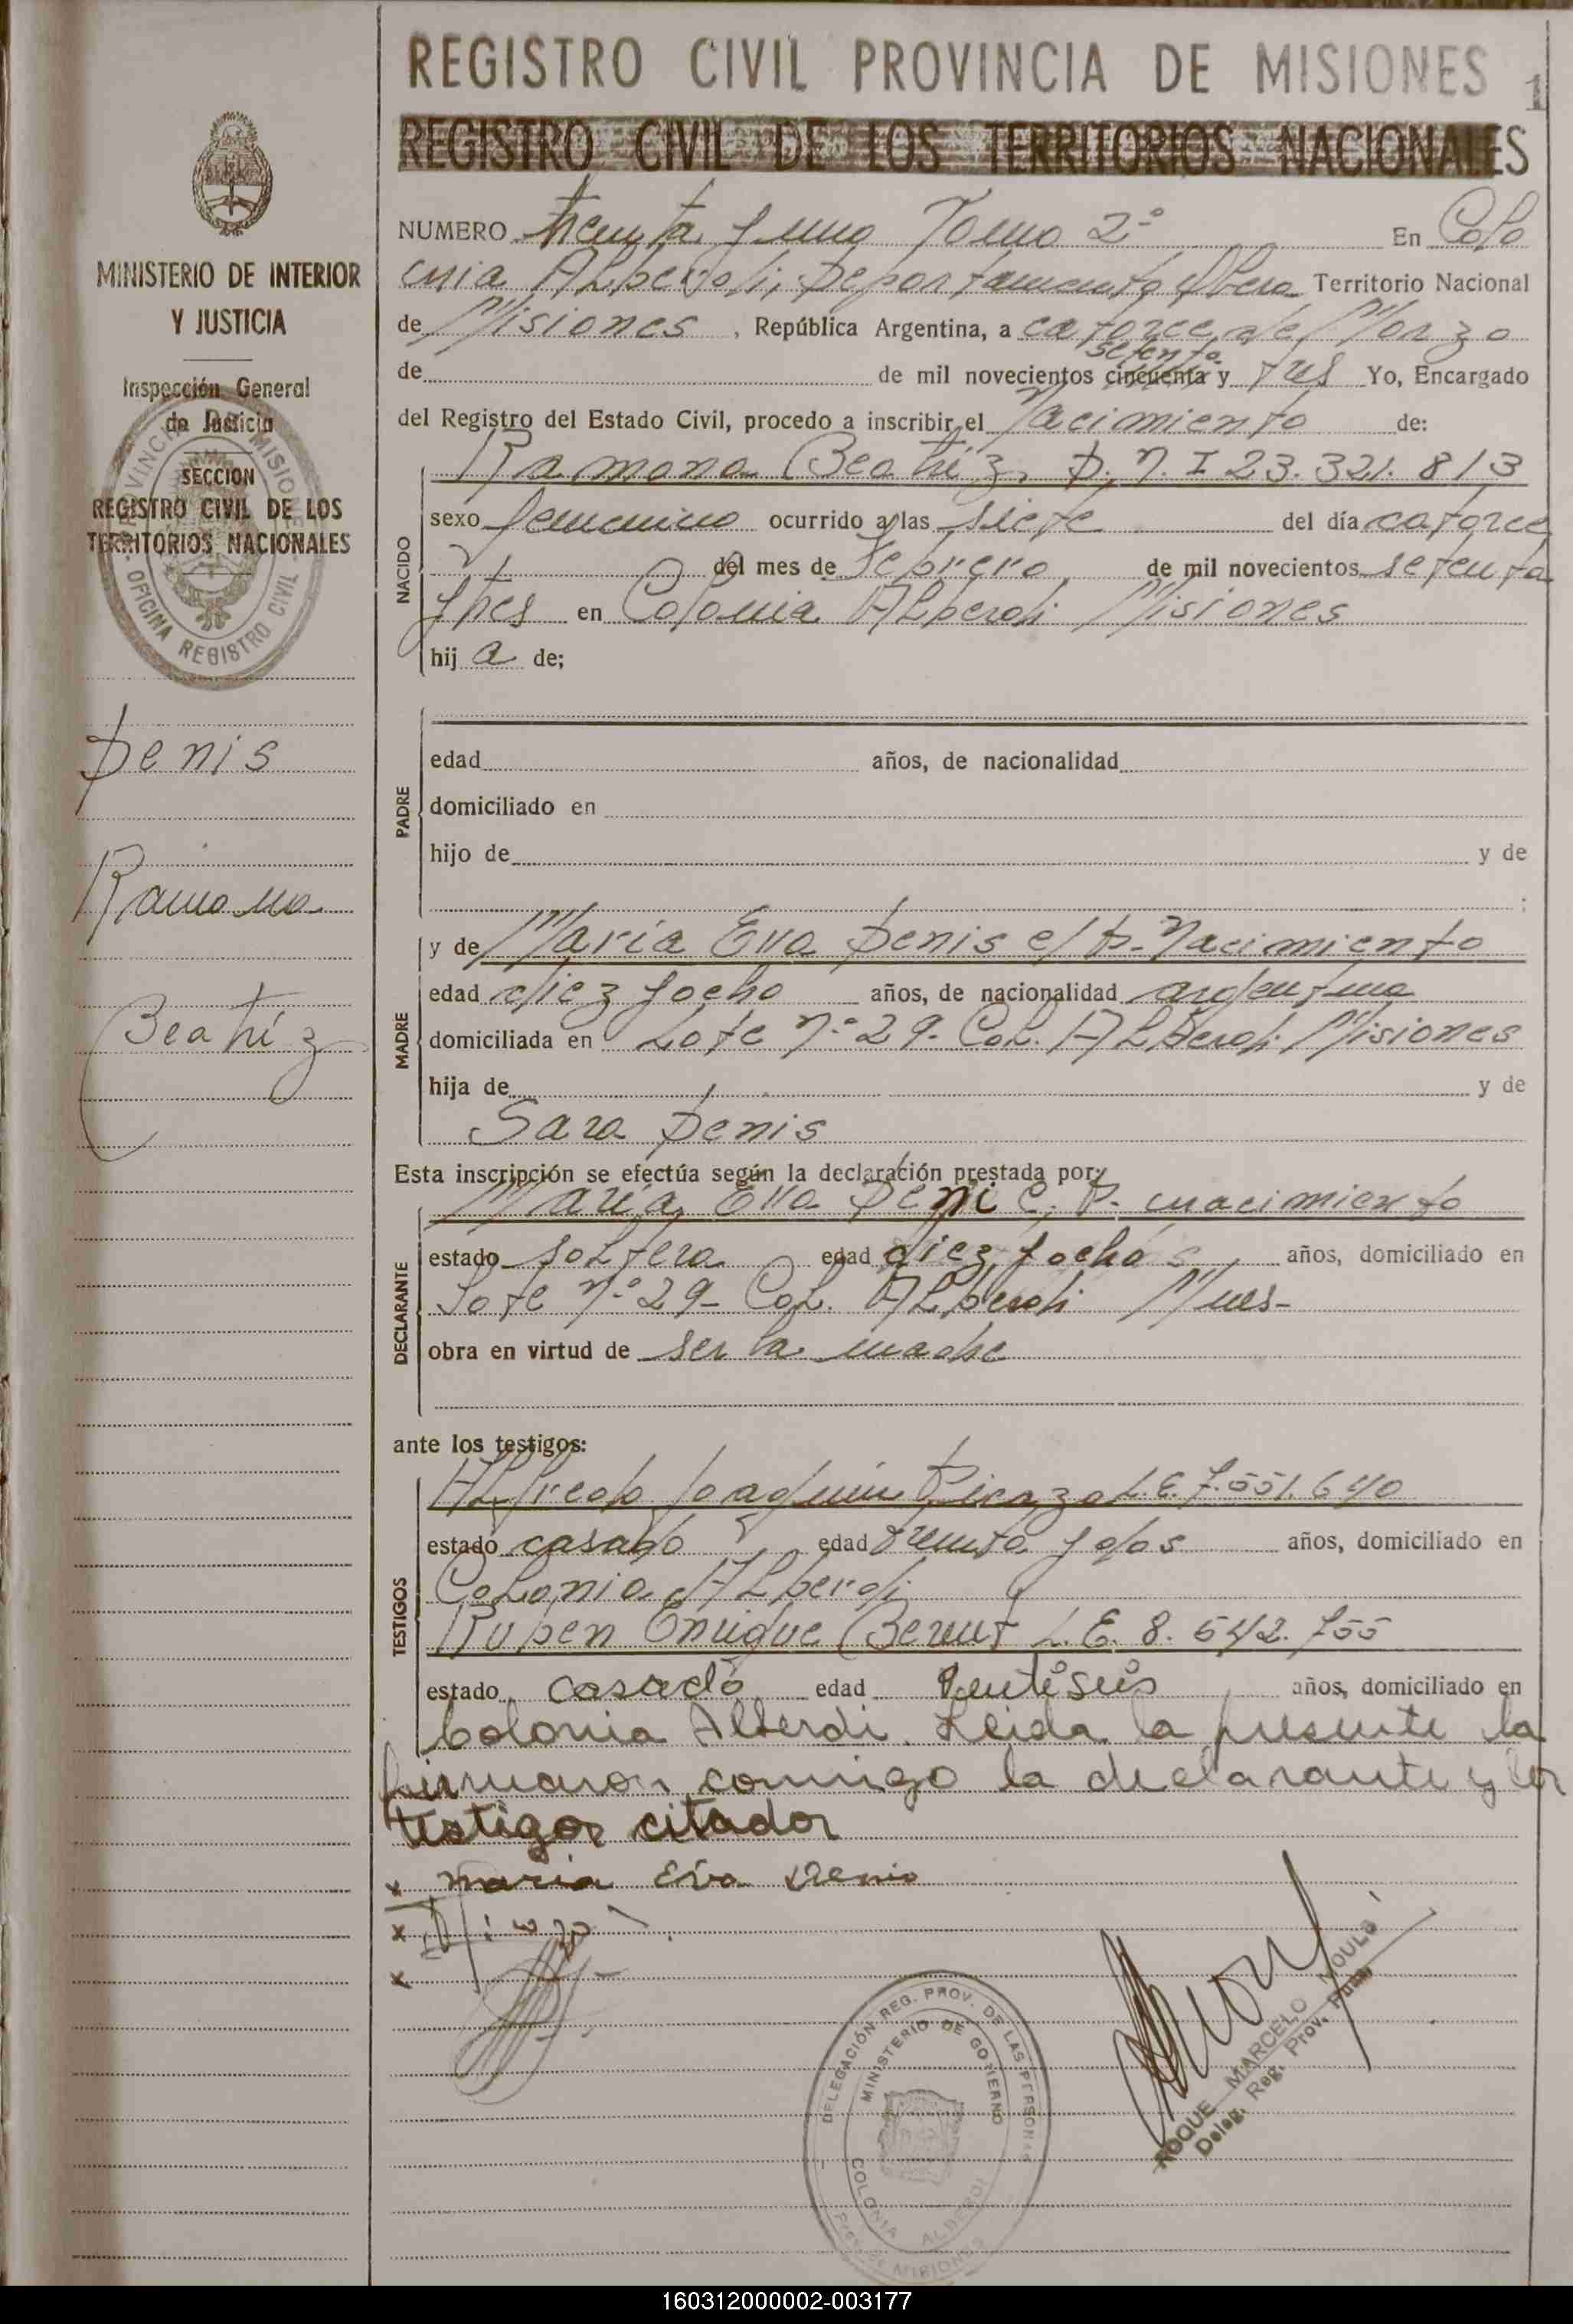 REGISTRO CIVIL PROVINCIA DE MISIONES 1
REGISTRO CIVIL DE LOS TERRITORIOS NACIONALES
MINISTERIO DE INTERIOR
Y JUSTICIA
Inspección General
de Justicia
SECCION
REGISTRO CIVIL DE LOS
TERRITORIOS NACIONALES
PROVINCIA MISIONES
OFICINA REGISTRO CIVIL
Denis
Ramona
Beatriz
NUMERO treinta y uno Tomo 2º En Colo
nia ALberdi, Departamento Obera Territorio Nacional
de Misiones , República Argentina, a catorce de Marzo
setenta
de de mil novecientos cincuenta y tres Yo, Encargado
del Registro del Estado Civil, procedo a inscribir el Nacimiento de:
NACIDO
Ramona Beatriz, D.N.I 23.321.813
sexo femenino ocurrido a las siete del día catorce
del mes de Febrero de mil novecientos setenta
y tres en Colonia ALberdi Misiones
hij a de;
PADRE
edad años, de nacionalidad
domiciliado en
hijo de y de
:
MADRE
y de Maria Eva Denis c/ P. Nacimiento
edad diez y ocho años, de nacionalidad argentina
domiciliada en Lote nº 29- CoL. ALberdi Misiones
hija de y de
Sara Denis
Esta inscripción se efectúa según la declaración prestada por:
DECLARANTE
Maria Eva Deni C. P. nacimiento
estado soLtera edad diez y ocho años, domiciliado en
Lote nº 29- CoL. ALberdi Mnes-
obra en virtud de ser la madre
ante los testigos:
TESTIGOS
ALfredo Joaquin L.E. 7.551.640
estado casado edad treinta y dos años, domiciliado en
CoLonia ALberdi
Ruben Enrique L.E. 8.542.755
estado casado edad años, domiciliado en
Colonia Alberdi. Leida la presente la
firmaron conmigo la declarante y los
testigos citados
x Maria Eva Denis
x
x
DELEGACIÓN REG. PROV. DE LAS PERSONAS
MINISTERIO DE GOBIERNO
COLONIA ALBERDI
Prov. de MISIONES
ROQUE MARCELO MOULO
Deleg. Reg. Prov. Pers.
160312000002-003177